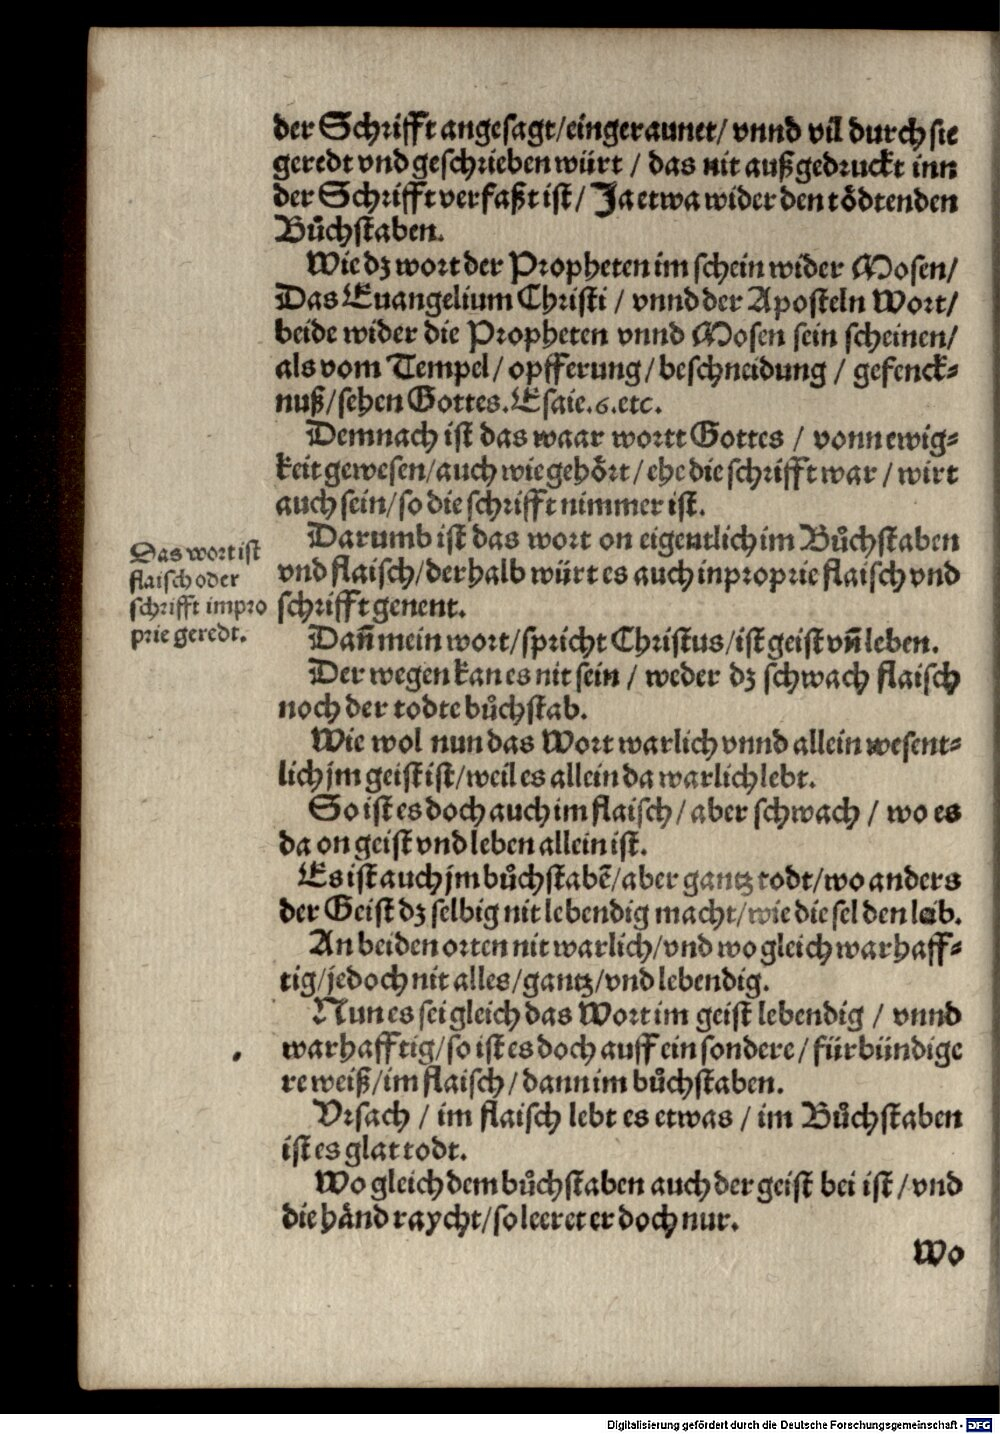 der Schrifft angesagt/eingeraunet/ vnnd vil durch sie
geredt vnd geschrieben würt / das nit außgedruckt inn
der Schrifft verfaßt ist/ Ja etwa wider den tödtenden
Bůchstaben.
Wie dz wort der Propheten im schein wider Mosen/
Das Euangelium Christi / vnnd der Aposteln Wort/
beide wider die Propheten vnnd Mosen sein scheinen/
als vom Tempel/ opfferung/ beschneidung / gefenck-
nuß/sehen Gottes. Esaie.6.etc.
Demnach ist das waar wortt Gottes / vonn ewig-
keit gewesen/auch wie gehört/ ehe die schrifft war / wirt
auch sein/ so die schrifft nimmer ist.
Darumb ist das wort on eigentlich im Bůchstaben
vnd flaisch/derhalb würt es auch inproprie flaisch vnd
schrifft genent.
Das wort ist
flaisch oder
schrifft impro
prie geredt.
Dañ mein wort/spricht Christus/ist geist vñ leben.
Der wegen kan es nit sein / weder dz schwach flaisch
noch der todte bůchstab.
Wie wol nun das Wort warlich vnnd allein wesent-
lich jm geist ist/weil es allein da warlich lebt.
So ist es doch auch im flaisch/ aber schwach / wo es
da on geist vnd leben allein ist.
Es ist auch jm bůchstabẽ/aber gantz todt/wo anders
der Geist dz selbig nit lebendig macht/wie die sel den leib.
An beiden orten nit warlich/vnd wo gleich warhaff-
tig/jedoch nit alles/gantz/vnd lebendig.
Nun es sei gleich das Wort im geist lebendig / vnnd
warhafftig/so ist es doch auff ein sondere/ fürbündige
re weiß/im flaisch/ dann im bůchstaben.
Vrsach / im flaisch lebt es etwas / im Bůchstaben
ist es glat todt.
Wo gleich dem bůchstaben auch der geist bei ist /vnd
die händ raycht/so leeret er doch nur.
Wo
Digitalisierung gefördert durch die Deutsche Forschungsgemeinschaft - DFG